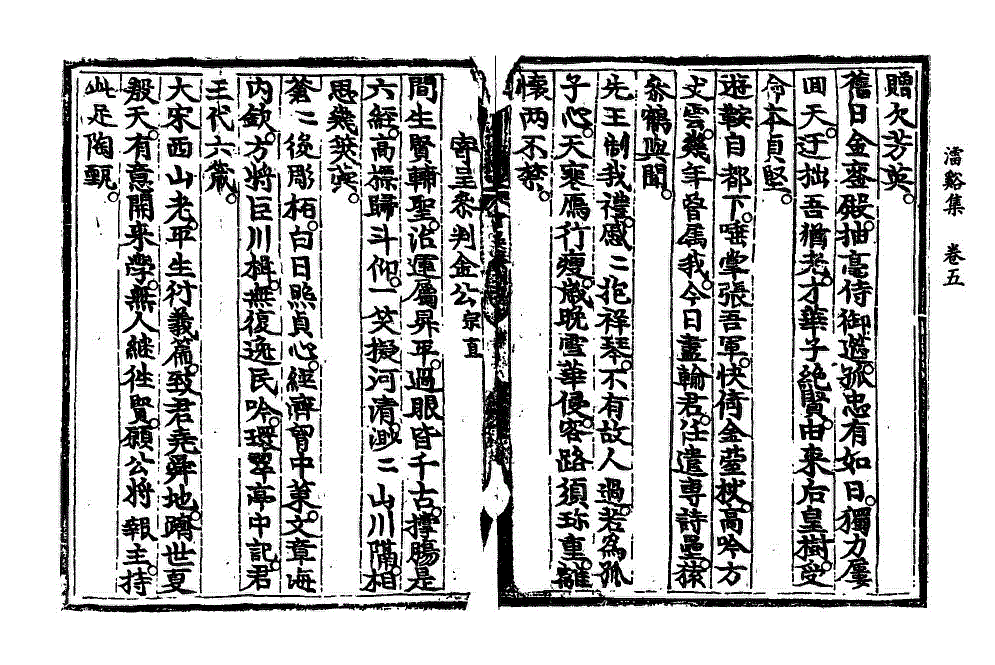 㵢谿集　卷五
贈欠芳英。
舊日金鑾殿。抽毫侍御遊。孤忠有如日。獨力屢
回天。迂拙吾猶老。才華子絶賢。由来后皇樹。受
命本貞堅。
遊鞍自都下。唾掌張吾軍。快倚金莖杖。高吟方
丈雲。幾年曾属我。今日盡輸君。任遣専詩墨。猿
叅鶴與聞。
先王制我禮。慼〻抱祥琴。不有故人過。若為孤
子心。天寒鴈行瘦。歳晚雪華侵。客路須珎重。離
懷兩不禁。
寄呈叅判金公宗直
間生賢輔聖。治運屬昇平。過眼皆千古。撐膓是
六經。高標歸斗仰。一笑擬河清。渺〻山川隔。相
思幾熒熒。
蒼〻後彫栢。白日照貞心。經濟胷中策。文章海
内欽。方將巨川楫。無復逸民吟。環翠亭中記。君
王代六箴。
大宋西山老。平生衍義篇。致君堯舜地。躋世夏
殷天。有意開来學。無人継徃賢。願公將報主。持
此足陶甄。